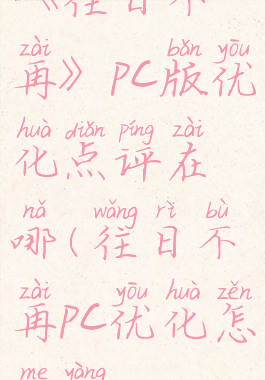 《往日不
zài bǎn yōu
再》PC版优
huà diǎn píng zài
化点评在
nǎ wǎng rì bù
哪(往日不
zài yōu huà zěn
再PC优化怎
me yàng